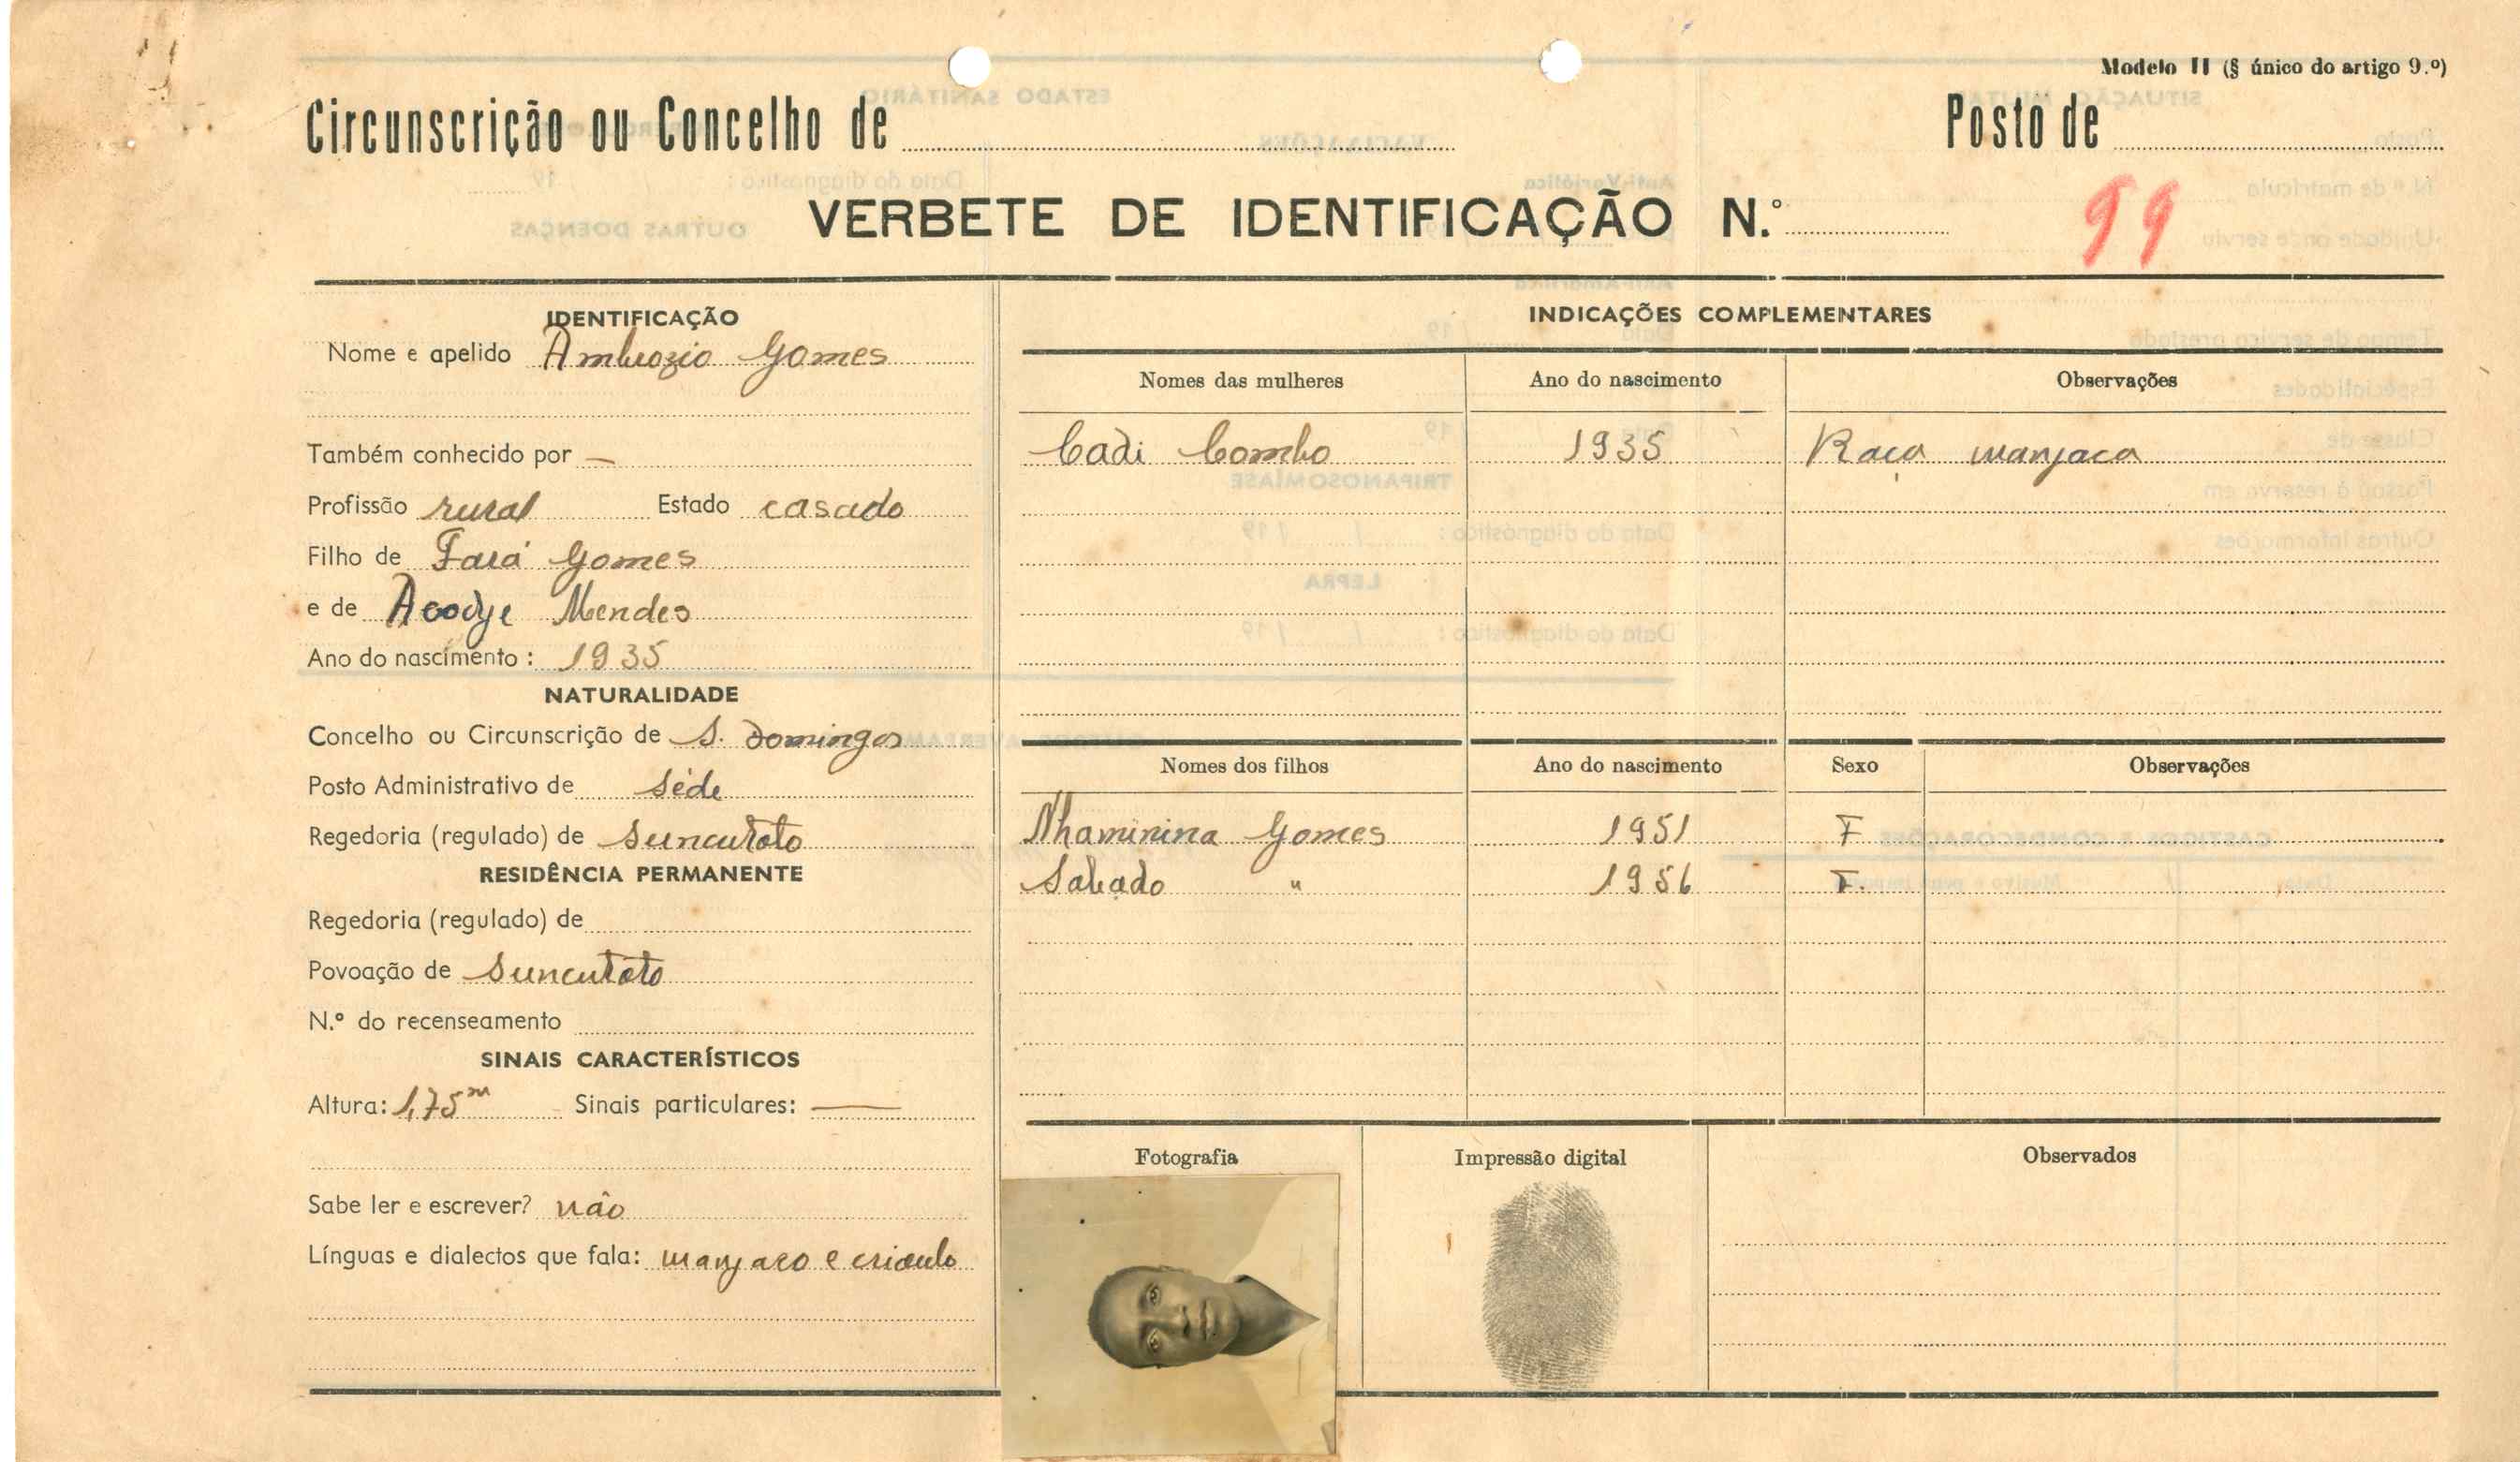 Modelo II (§ único do artigo 9.º)
Circunscrição ou Concelho de
Posto de
VERBETE DE IDENTIFICAÇÃO N.º
99
IDENTIFICAÇÃO
Nome e apelido Ambrozio Gomes
Também conhecido por —
Profissão rural Estado casado
Filho de Fará Gomes
e de Acodje Mendes
Ano do nascimento : 1935
NATURALIDADE
Concelho ou Circunscrição de S. Domingos
Posto Administrativo de Séde
Regedoria (regulado) de Suncutoto
RESIDÊNCIA PERMANENTE
Regedoria (regulado) de
Povoação de Suncutoto
N.º do recenseamento
SINAIS CARACTERÍSTICOS
Altura: 1,75m Sinais particulares: —
Sabe ler e escrever? não
Línguas e dialectos que fala: manjaco e crioulo
INDICAÇÕES COMPLEMENTARES
Nomes das mulheres Ano do nascimento Observações
Cadi Combo 1935 Raça manjaca
Nomes dos filhos Ano do nascimento Sexo Observações
Nhaminina Gomes 1951 F
Sabado " 1956 F.
Fotografia Impressão digital Observados